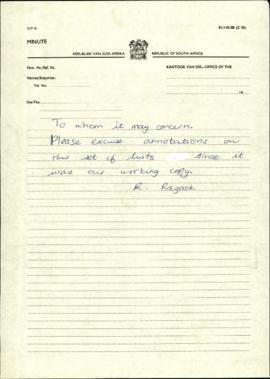 MINUTE
REPUBLIEK VAN SUID-AFRIKA
REPUBLIC OF SOUTH AFRICA
KANTOOR VAN DIE—OFFICE OF THE
Tel. No.
19
To whom it may concern.
Please excuse annotations on
this set of lists since it
was our working copy.
R. Razack